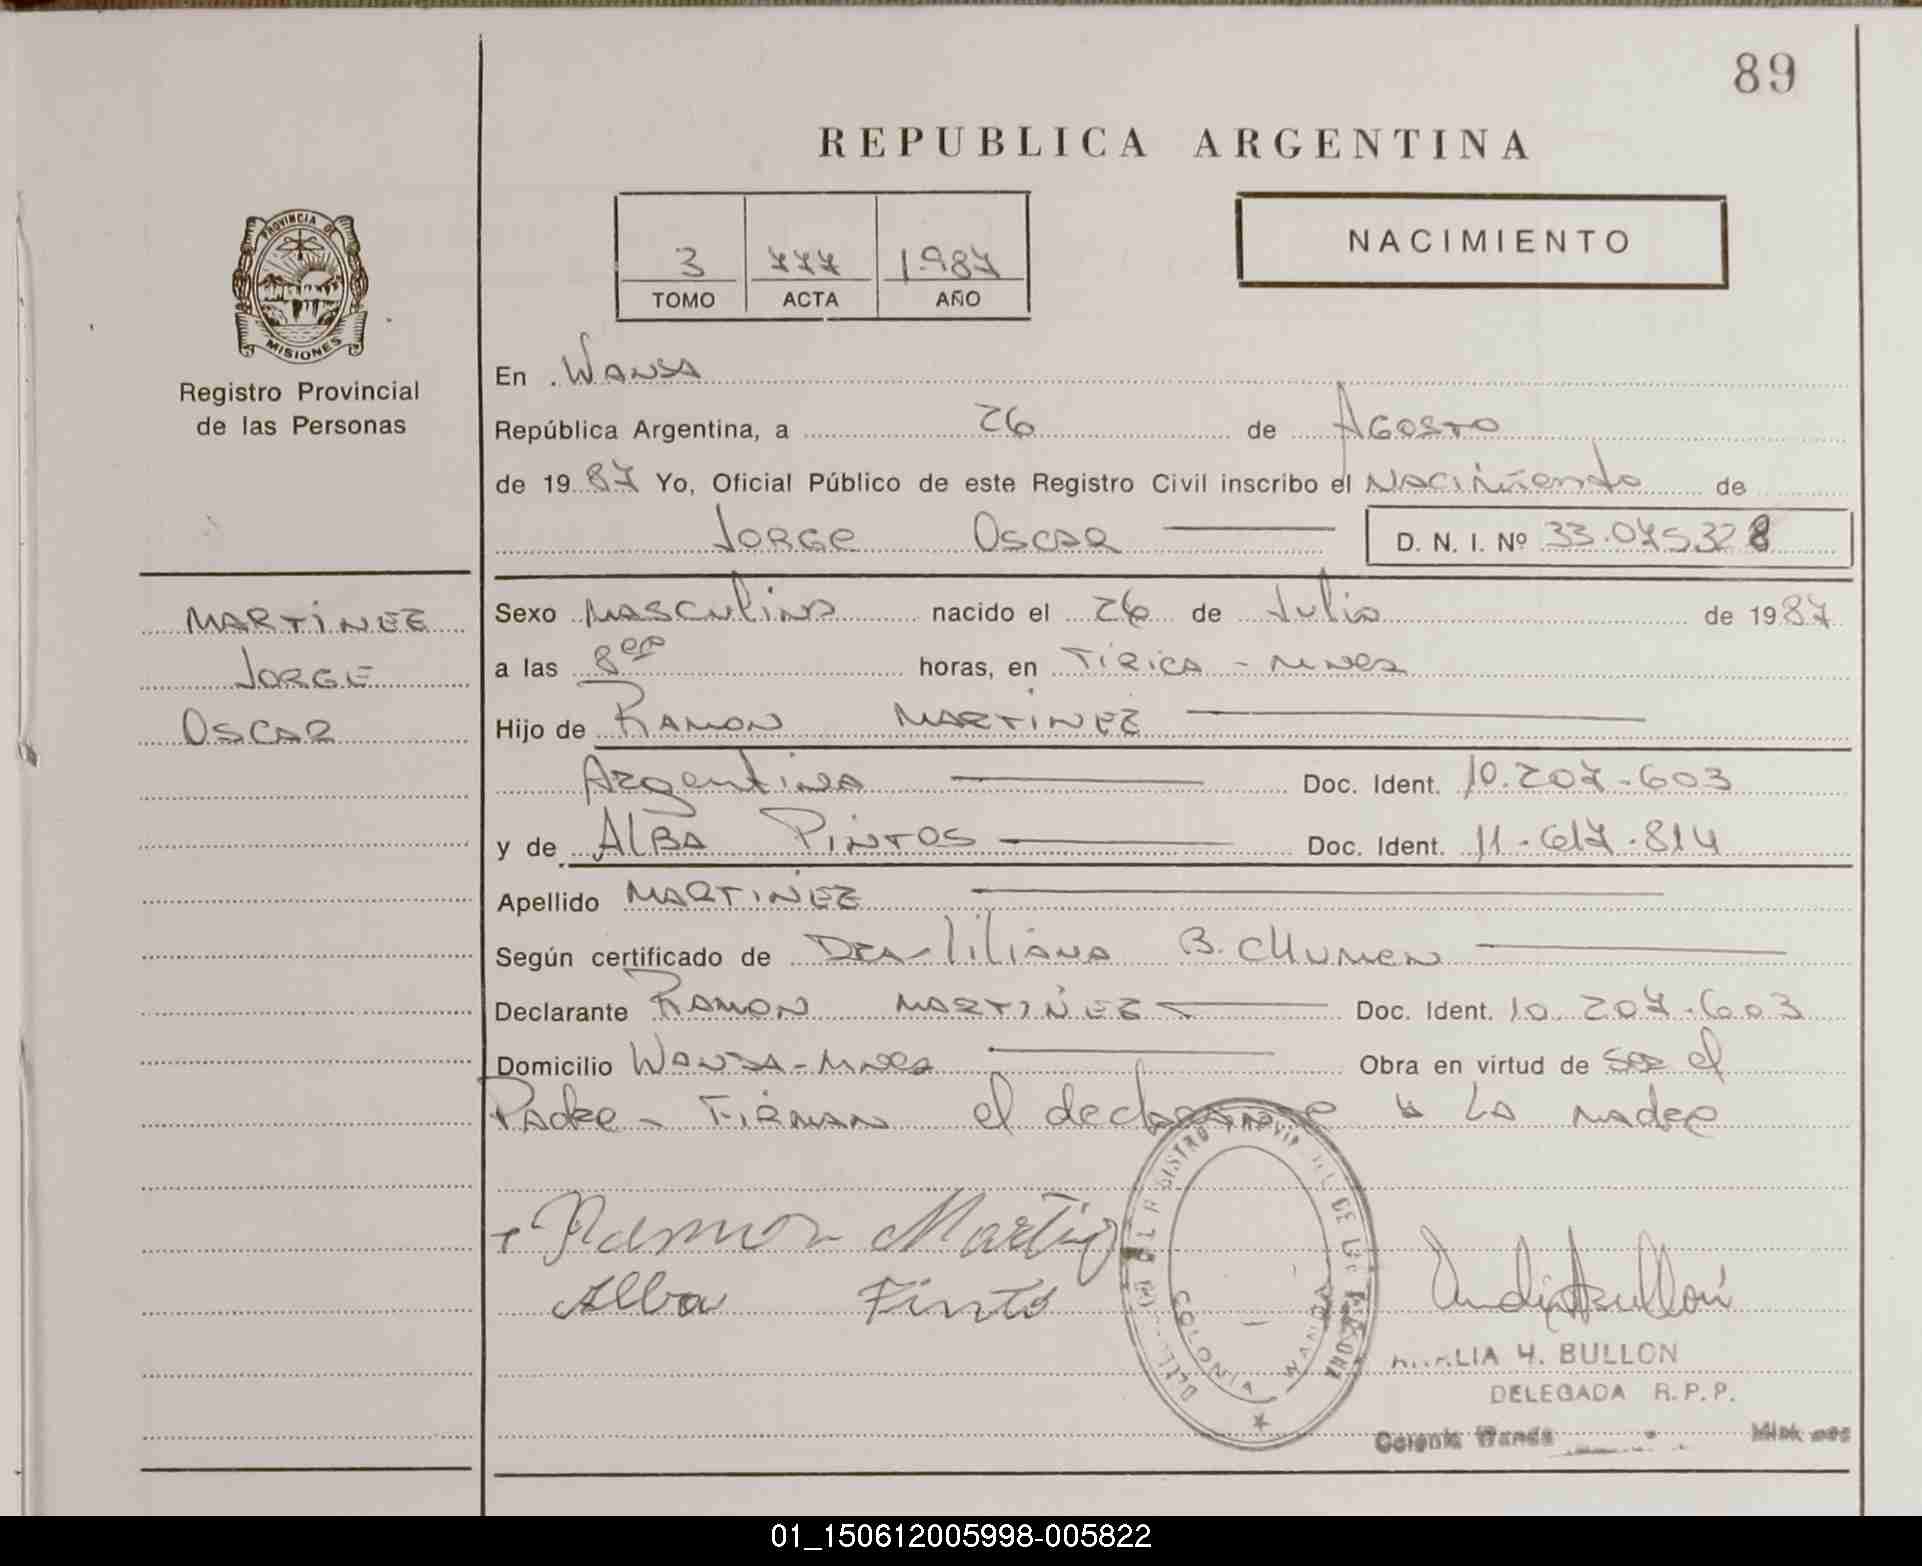 89
REPUBLICA ARGENTINA
PROVINCIA DE
MISIONES
Registro Provincial
de las Personas
3 777 1987
TOMO ACTA AÑO
NACIMIENTO
En Wanda
República Argentina, a 26 de Agosto
de 1987 Yo, Oficial Público de este Registro Civil inscribo el Nacimiento de
Jorge Oscar D. N. I. Nº 33.075328
MARTINEZ
JORGE
OSCAR
Sexo masculino nacido el 26 de Julio de 1987
a las 8 horas, en Tirica - Mnes
Hijo de RAMON MARTINEZ
Argentina Doc. Ident. 10.207.603
y de ALBA PINTOS Doc. Ident. 11.617.814
Apellido MARTINEZ
Según certificado de DRA Liliana B.
Declarante RAMON MARTINEZ Doc. Ident. 10.207.603
Domicilio Wanda - Mnes Obra en virtud de ser el
Padre - Firman el declarante y La madre
Ramon
Alba
COLONIA WANDA
H. BULLON
DELEGADA R.P.P.
Colonia Wanda Misiones
01_150612005998-005822